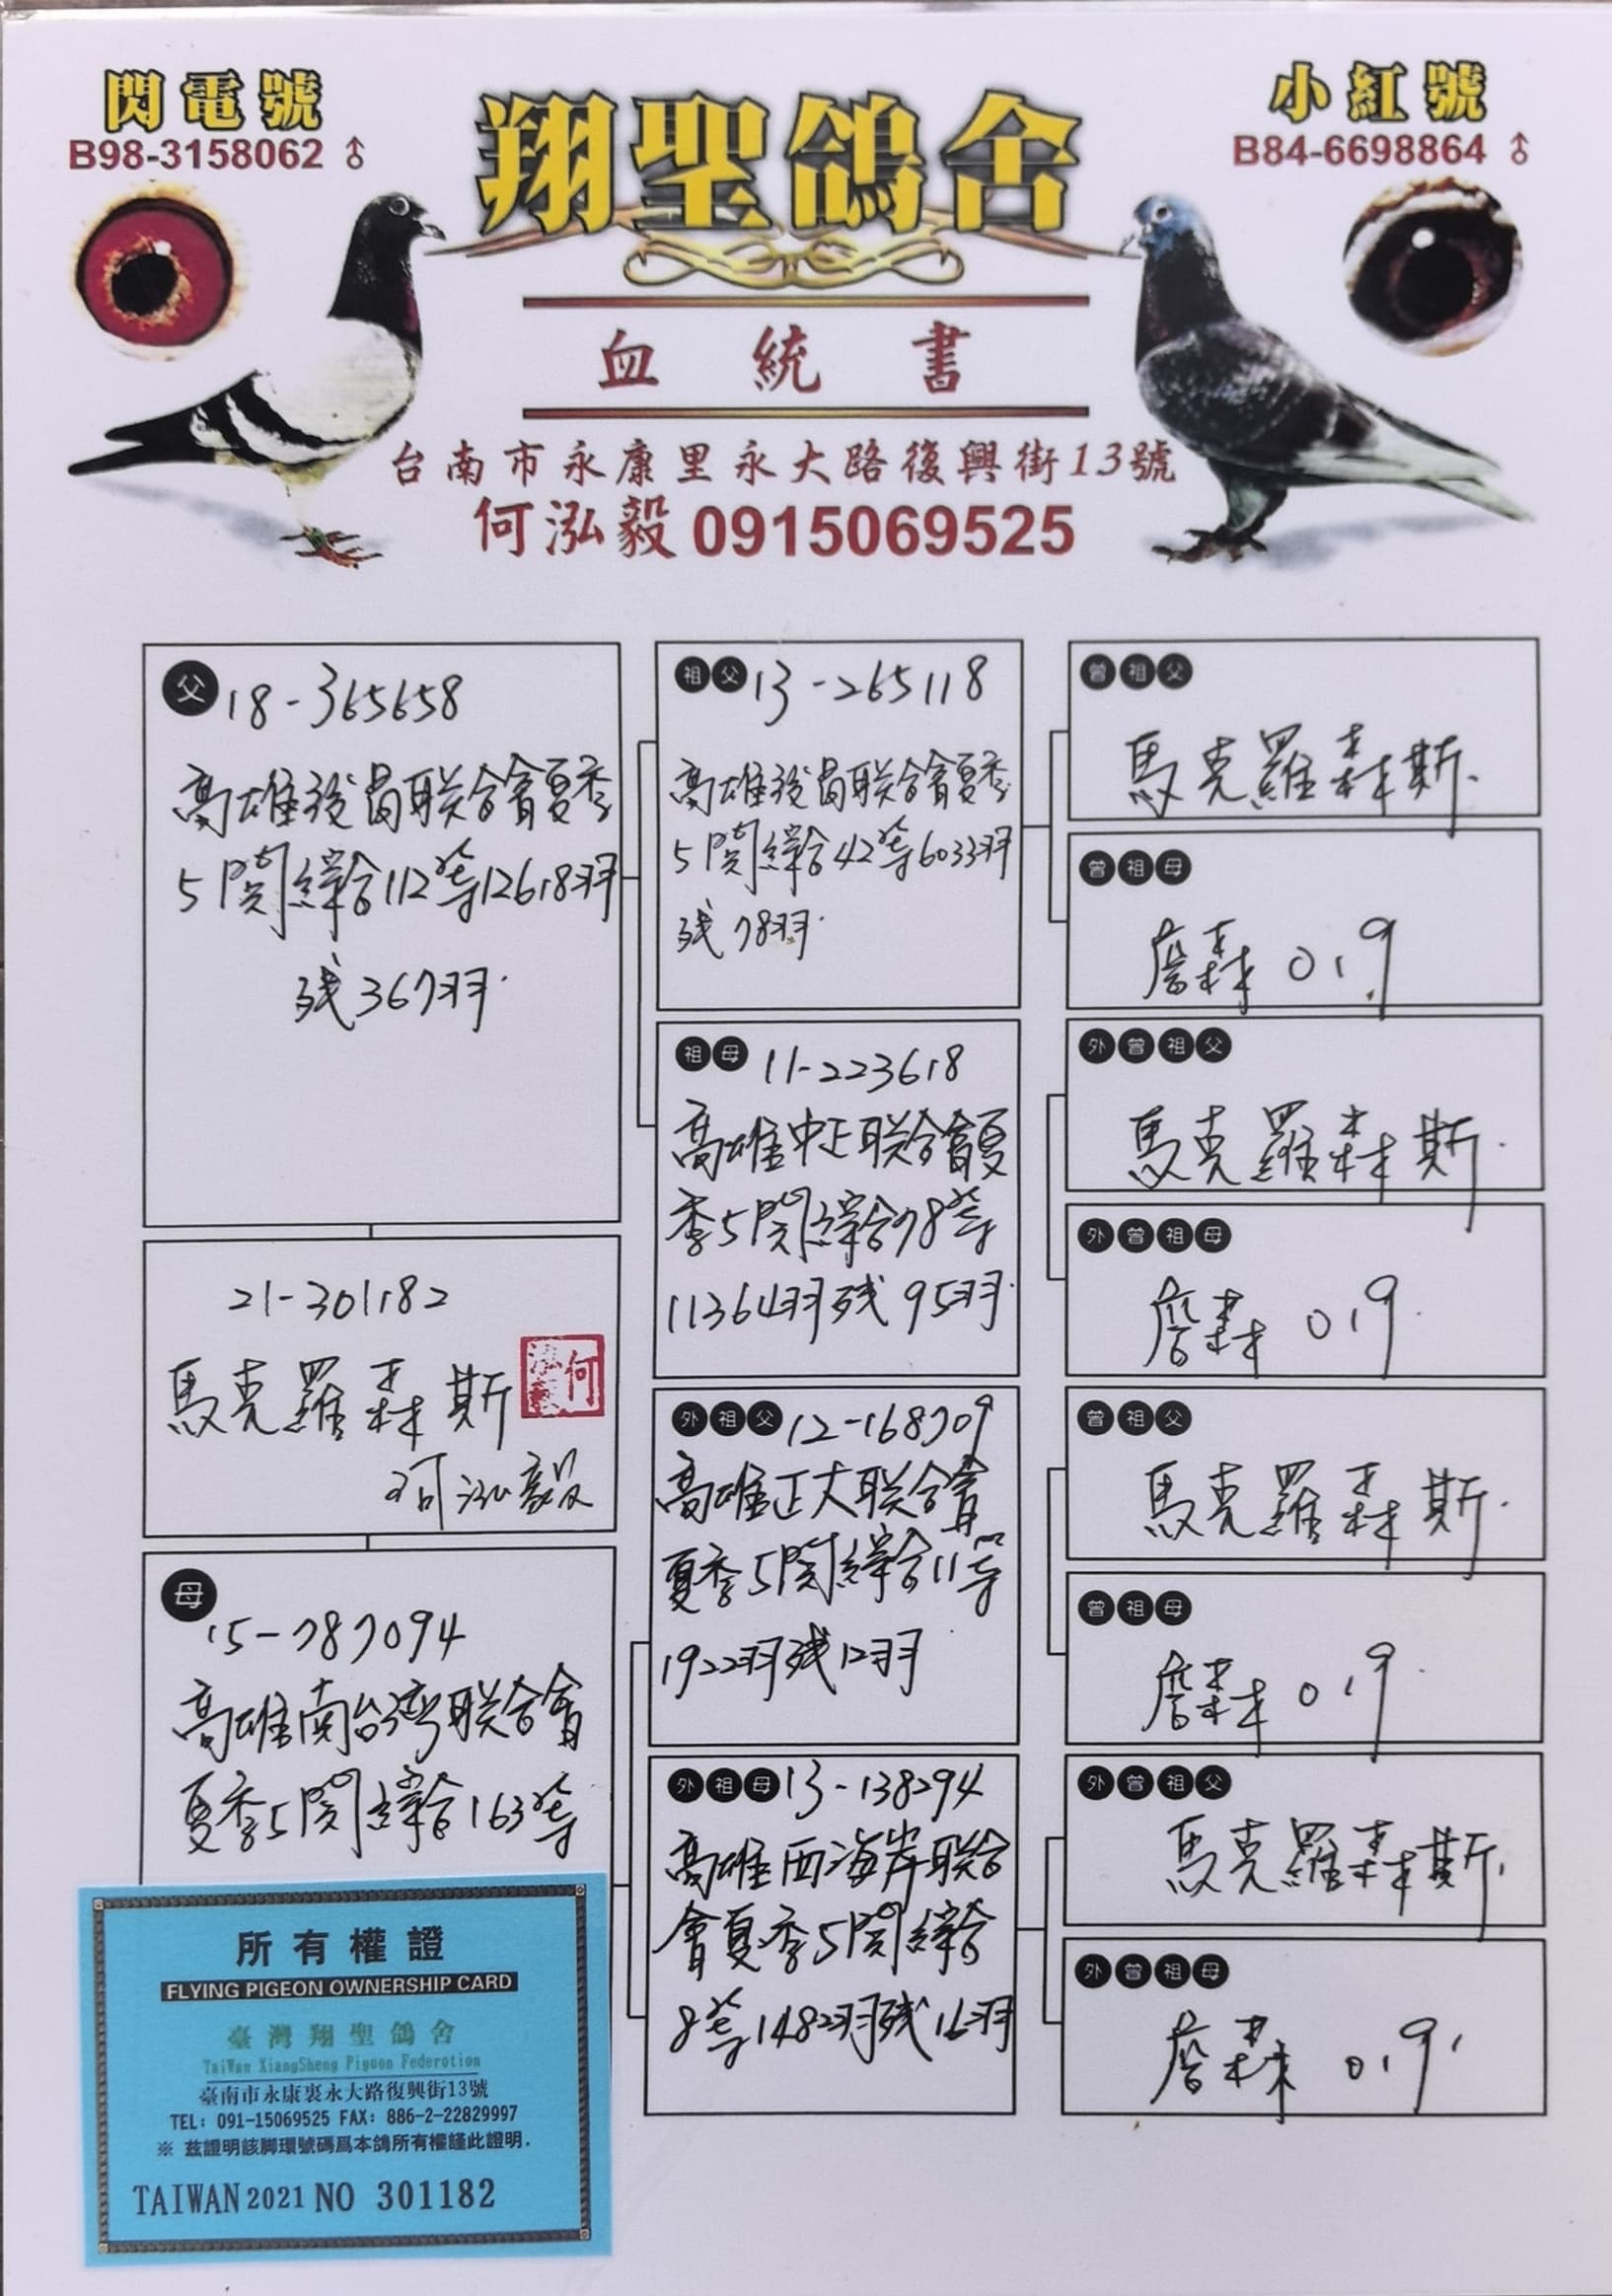 閃電號
B98-3158062 ♂
翔聖鴿舍
小紅號
B84-6698864 ♂
血統書
台南市永康里永大路復興街13號
何泓毅 0915069525
父 18-365658
高雄 联合會夏季
5関綜合112等12618羽
残367羽.
21-301182
馬克羅森斯
何泓毅
何泓毅
母
15-787094
高雄南台湾联合會
夏季5関綜合163等
祖父 13-265118
高雄 联合會夏季
5関綜合42等6033羽
残78羽.
祖母 11-223618
高雄中正联合會夏
季5関綜合78等
11364羽残95羽.
外祖父 12-168709
高雄正大联合會
夏季5関綜合11等
1922羽残12羽
外祖母 13-138294
高雄西海岸联合
會夏季5関綜合
8等1482羽残16羽
曾祖父
馬克羅森斯.
曾祖母
詹森 019
外曾祖父
馬克羅森斯.
外曾祖母
詹森 019.
曾祖父
馬克羅森斯.
曾祖母
詹森 019.
外曾祖父
馬克羅森斯.
外曾祖母
詹森 019.
所有權證
FLYING PIGEON OWNERSHIP CARD
臺灣翔聖鴿舍
TaiWan XiangSheng Pigoon Federotion
臺南市永康裏永大路復興街13號
TEL: 091-15069525 FAX: 886-2-22829997
※ 茲證明該脚環號碼爲本鴿所有權謹此證明.
TAIWAN 2021 NO 301182